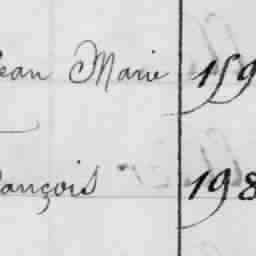 ean Marie 159
ançois 198